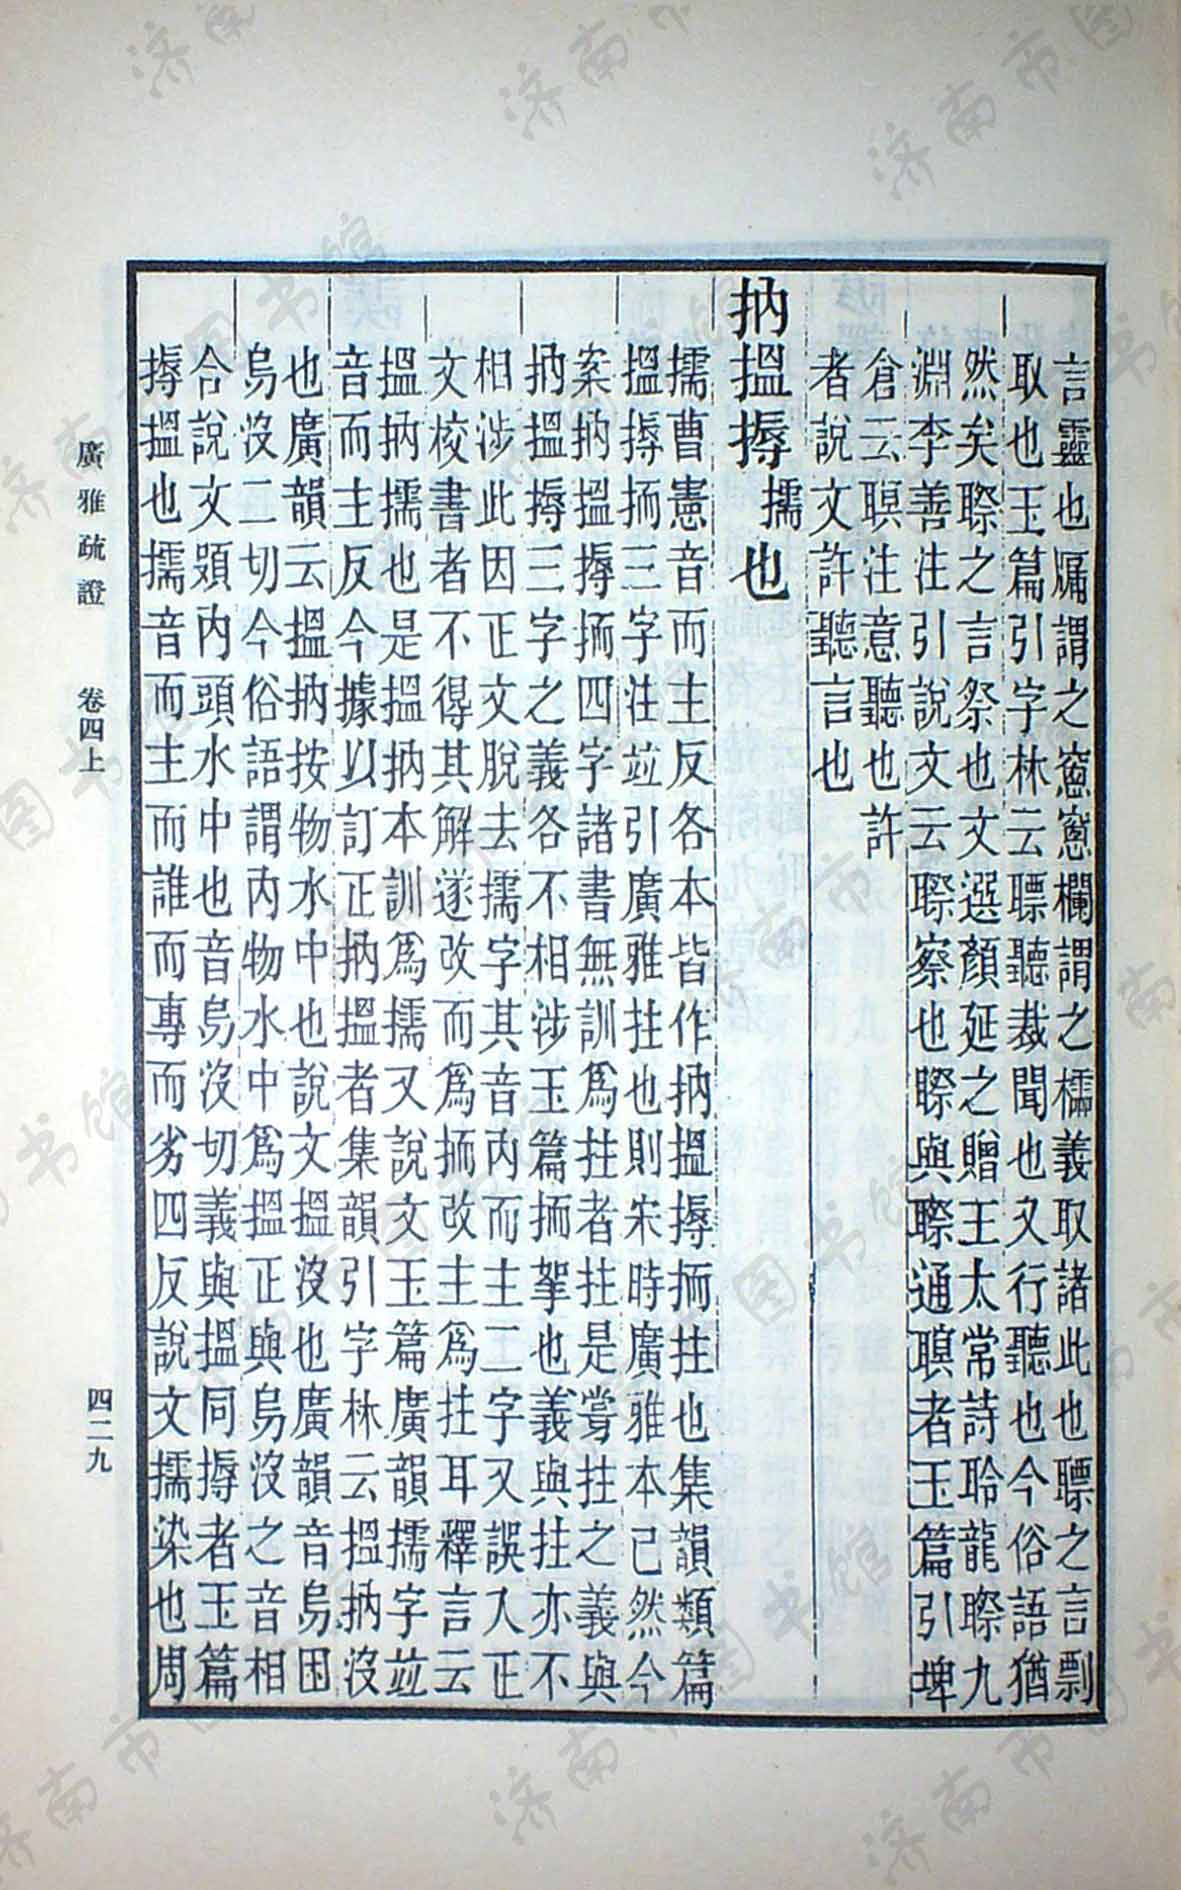 言靈也𤗈謂之窻窻欞謂之櫺義取諸此也聽之言剽
取也玉篇引字林云瞟聽裁聞也又行聽也今俗語猶
然矣聺之言祭也文選顏延之贈王太常詩聆龍聺九
淵李善注引說文云聺察也瞭與聺通瞑者玉篇引埤
倉云瞑注意聽也許
者說文許聽言也
抐搵搙擩也
擩曹憲音而主反各本皆作抐搵搙抪拄也集韻類篇
搵搙抪三字注竝引廣雅拄也則宋時廣雅本已然今
案抐搵搙抪四字諸書無訓爲拄者拄是掌拄之義與
抐搵搙三字之義各不相涉玉篇抪挐也義與拄亦不
相涉此因正文脫去擩字其音內而主二字又誤入正
文校書者不得其解遂改而爲抪改主爲拄耳釋言云
搵抐擩也是搵抐本訓爲擩又說文玉篇廣韻擩字竝
音而主反今據以訂正抐搵者集韻引字林云搵抐沒
也廣韻云搵抐按物水中也說文搵沒也廣韻音烏困
烏沒二切今俗語謂內物水中爲搵正與烏沒之音相
合說文頞內頭水中也音烏沒切義與搵同搙者玉篇
搙搵也擩音而主而誰而專而劣四反說文擩染也周
廣雅疏證
卷四上
四二九